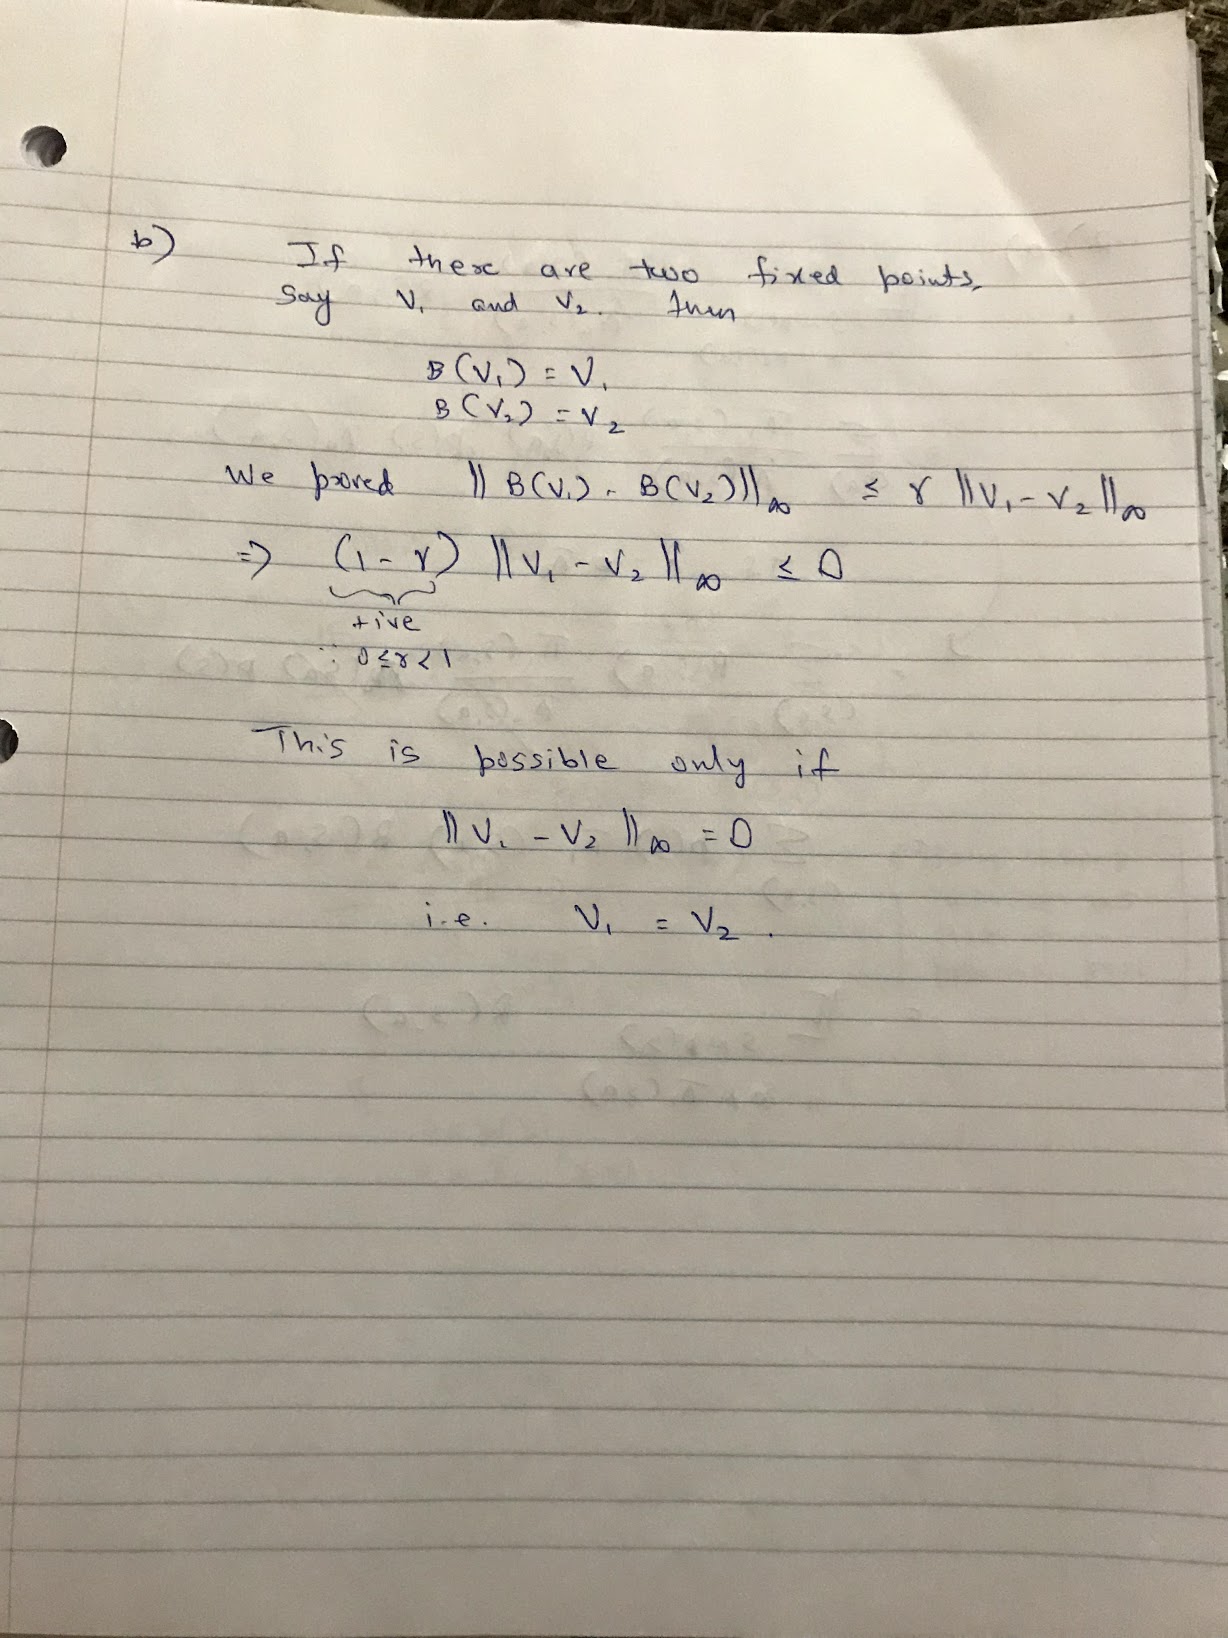 b) If there are two fixed points,
say V₁ and V₂. then
B(V₁) = V₁
B(V₂) = V₂
We proved ||B(V₁) - B(V₂)||∞ ≤ γ ||V₁ - V₂||∞
⇒ (1-γ) ||V₁ - V₂||∞ ≤ 0
+ive
∵ 0≤γ<1
This is possible only if
||V₁ - V₂||∞ = 0
i.e. V₁ = V₂.